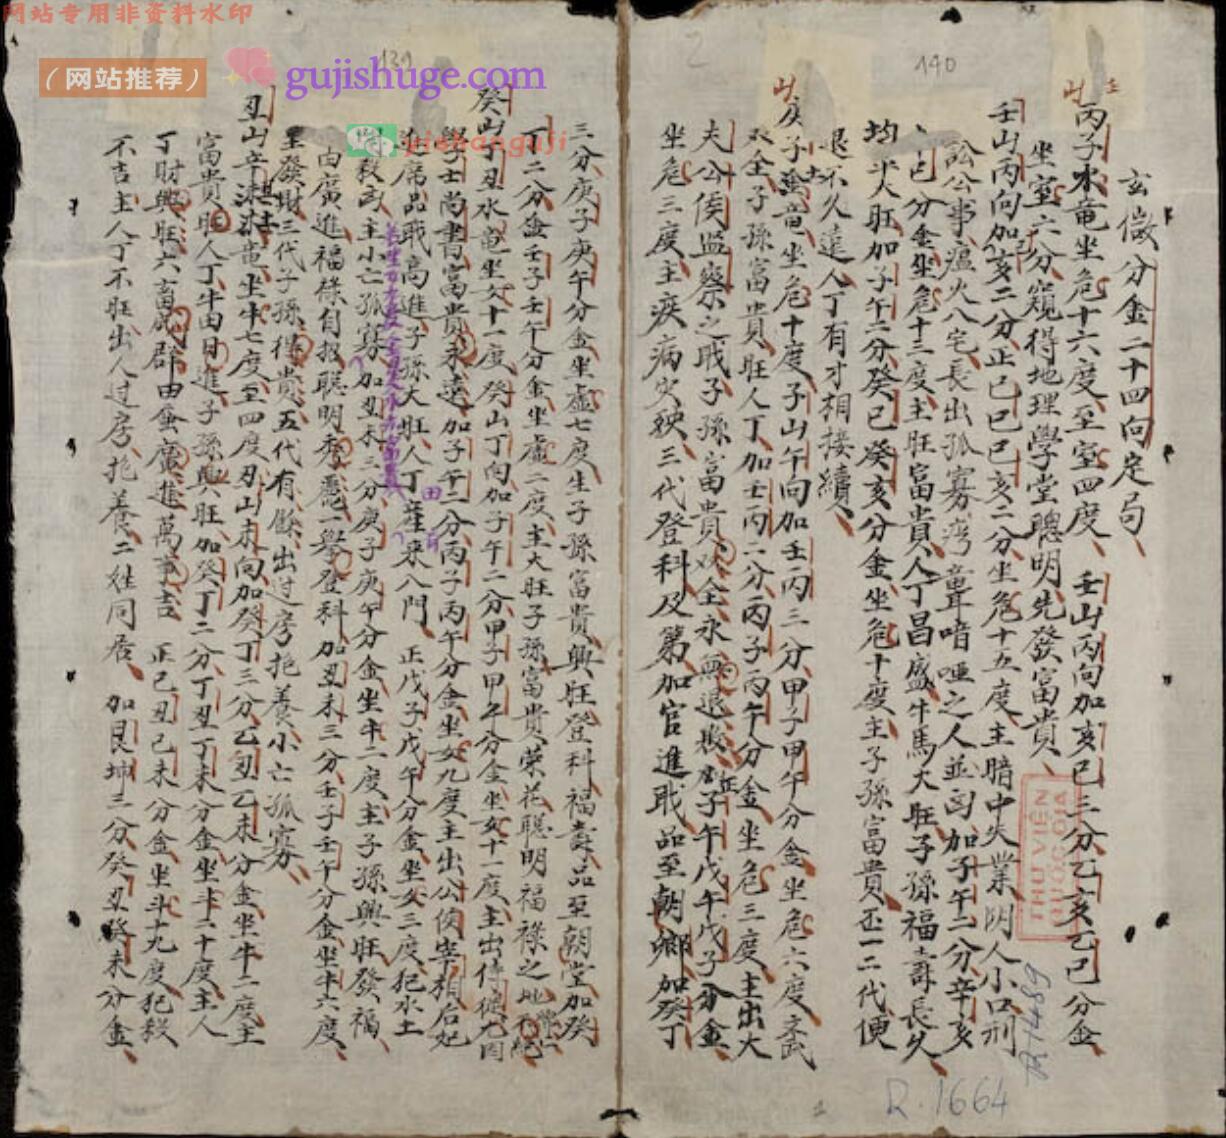 网站专用非资料水印
（网站推荐）
gujishuge.com
yishanguji
139
140
2
玄微分金二十四向定局
丙子水竜坐危十六度至室四度、壬山丙向加亥巳三分乙亥乙巳分金
坐室六分窺得地理學堂聰明先發富貴、
壬山丙向加亥二分正己巳己亥二分坐危十五度主暗中失業阴人小口刑
訟公事瘟火八宅長出孤寡湾聾喑啞之人並凶加子午二分辛亥
辛巳分金坐危十三度主旺富貴人丁昌盛牛馬大旺子孫福壽長久
均平大旺加子午二分癸巳癸亥分金坐危十度主子孫富貴丕一二代便
退不久遠人丁有才相接續、
庚子土竜坐危十度子山午向加壬丙三分甲子甲午分金坐危六度文武
双全子孫富貴旺人丁加壬丙二分丙子丙午分金坐危三度主出大
夫公侯监察之职子孫富貴双全永無退敗正加子午戊午戊子分金
坐危三度主疾病灾殃三代登科及第加官進职品至朝鄉加癸丁
三分庚子庚午分金坐虛七度生子孫富貴興旺登科福壽品至朝堂加癸
丁二分金壬子壬午分金坐虛二度主大旺子孫富貴榮花聰明福祿之地
癸山丁丑水竜坐女十一度癸山丁向加子午二分甲子甲午分金坐女十一度主出侍從九因
學士尚書富貴永遠加子午二分丙子丙午分金坐女九度主出公侯宰相后妃
進席品职高進子孫大旺人丁 来八門、正戊子戊午分金坐女三度犯水土
煞主小亡孤寡加丑未三分庚子庚午分金坐牛二度主子孫興旺發福
由廣進福祿自招聰明秀 一舉登科加丑未三分壬子壬午分金坐牛六度
里發財三代子孫得貴五代有餘出过房抱養小亡孤寡、
丑山辛丑土竜坐牛七度至四度丑山未向加癸丁三分乙丑乙未分金坐牛二度主
富貴旺人丁牛田日進子孫興旺加癸丁二分丁丑丁未分金坐斗二十度主人
丁財興旺六畜成群田蚕廣進萬事吉 正己丑己未分金坐斗十九度犯殺
不吉主人丁不旺出人过房抱養二姓同居、加艮坤三分癸丑癸未分金、
THƯ VIỆN
QUỐC GIA
R.1489
R.1664